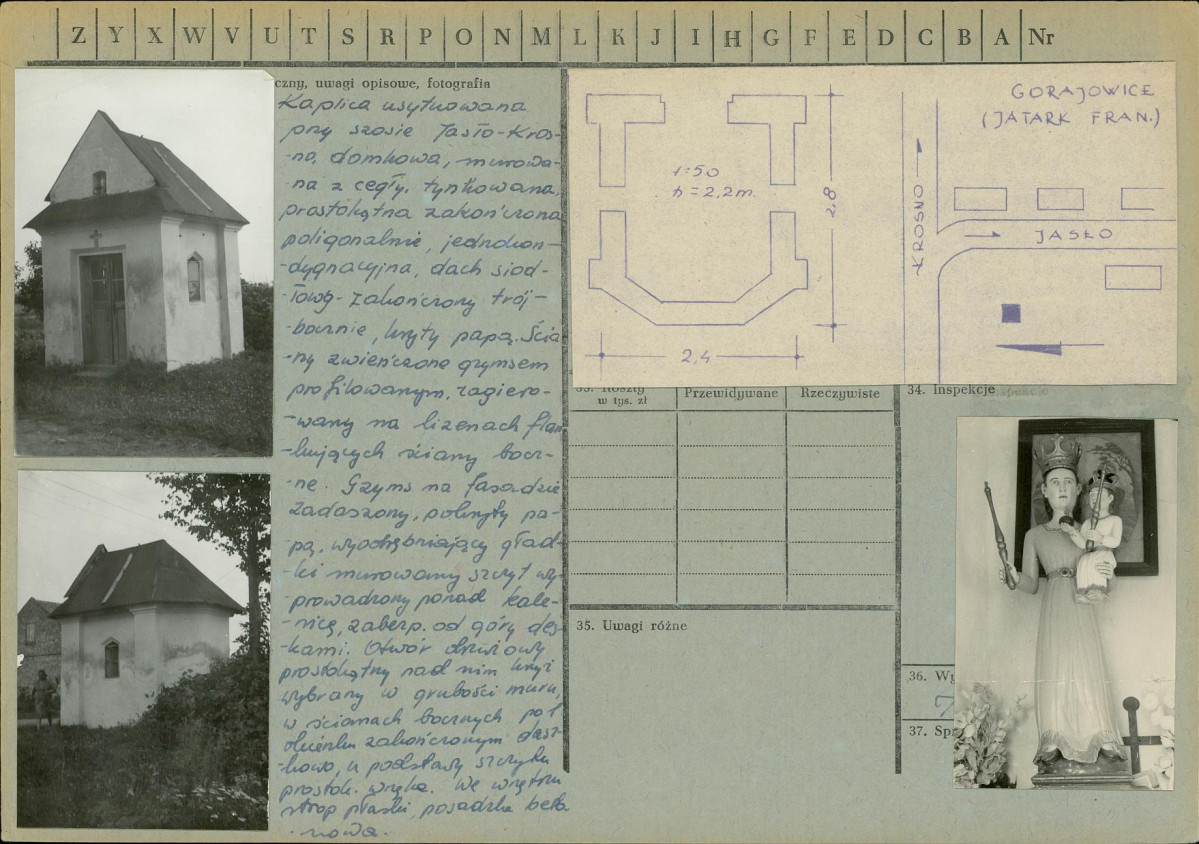 Z Y X W V U T S R P O N M L K J I H G F E D C B A Nr
czny, uwagi opisowe, fotografia
Kaplica usytuowana
przy szosie Jasło-Kros-
-no, domkowa, murowa-
-na z cegły, tynkowana,
prostokątna zakończona
poligonalnie, jednokon-
-dygnacyjna, dach siod-
-łowy zakończony trój-
-bocznie, kryty papą. Ścia
-ny zwieńczone gzymsem
profilowanym, zagiero-
-wany na lizenach flan
-kujących ściany bocz-
-ne. Gzyms na fasadzie
zadaszony, pokryty pa-
-pą, wyodrębniający gład-
-ki murowany szczyt wy-
-prowadzony ponad kale-
-nicę, zabezp. od góry des-
-kami. Otwór drzwiowy
prostokątny nad nim krzyż
wybrany w grubości muru,
w ścianach bocznych po 1
okienku zakończonym dasz-
-kowo, u podstawy szczytu
prostok. wnęka. We wnętrzu
strop płaski, posadzka beto
-nowa.
1:50
h = 2,2m.
2,8
2,4
GORAJOWICE
(JATARK FRAN.)
KROSNO
JASŁO
33. Koszty
w tys. zł
Przewidywane
Rzeczywiste
34. Inspekcje
35. Uwagi różne
36. Wy
37. Sp